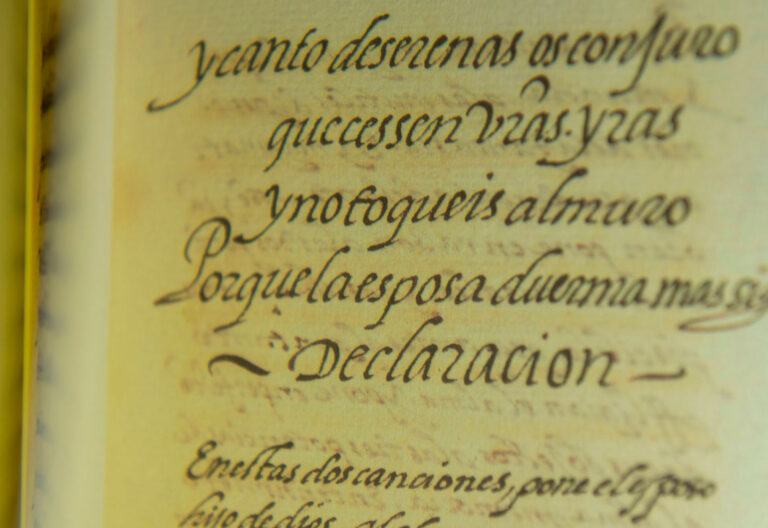 y canto de serenas os conjuro
que cessen vr̃as. yras
y no toqueis al muro
Porque la esposa duerma mas
~ Declaracion ~
En estas dos canciones, pone el esposo
hijo de dios